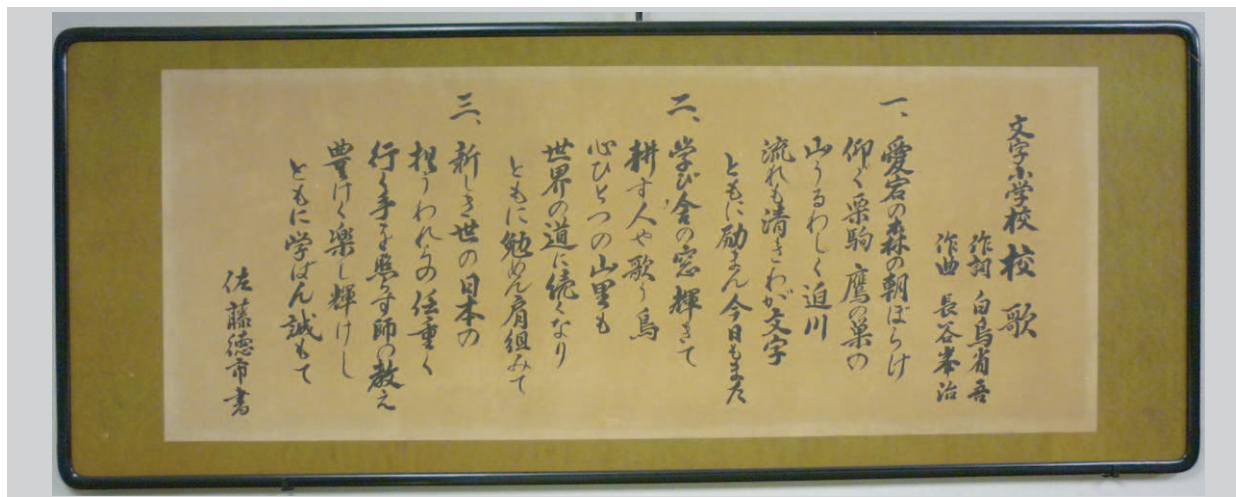 文字小学校 校歌
作詞 白鳥省吾
作曲 長谷峯治
一、愛宕の森の朝ぼらけ
仰ぐ栗駒 鷹の巣の
山うるわしく迫川
流れも清きわが文字
ともに励まん今日もまた
二、学び舎の窓輝きて
耕す人や歌う鳥
心ひとつの山里も
世界の道に続くなり
ともに勉めん肩組みて
三、新しき世の日本の
担うわれらの任重く
行く手を照らす師の教え
豊けく楽し輝けし
ともに学ばん誠もて
佐藤徳市書